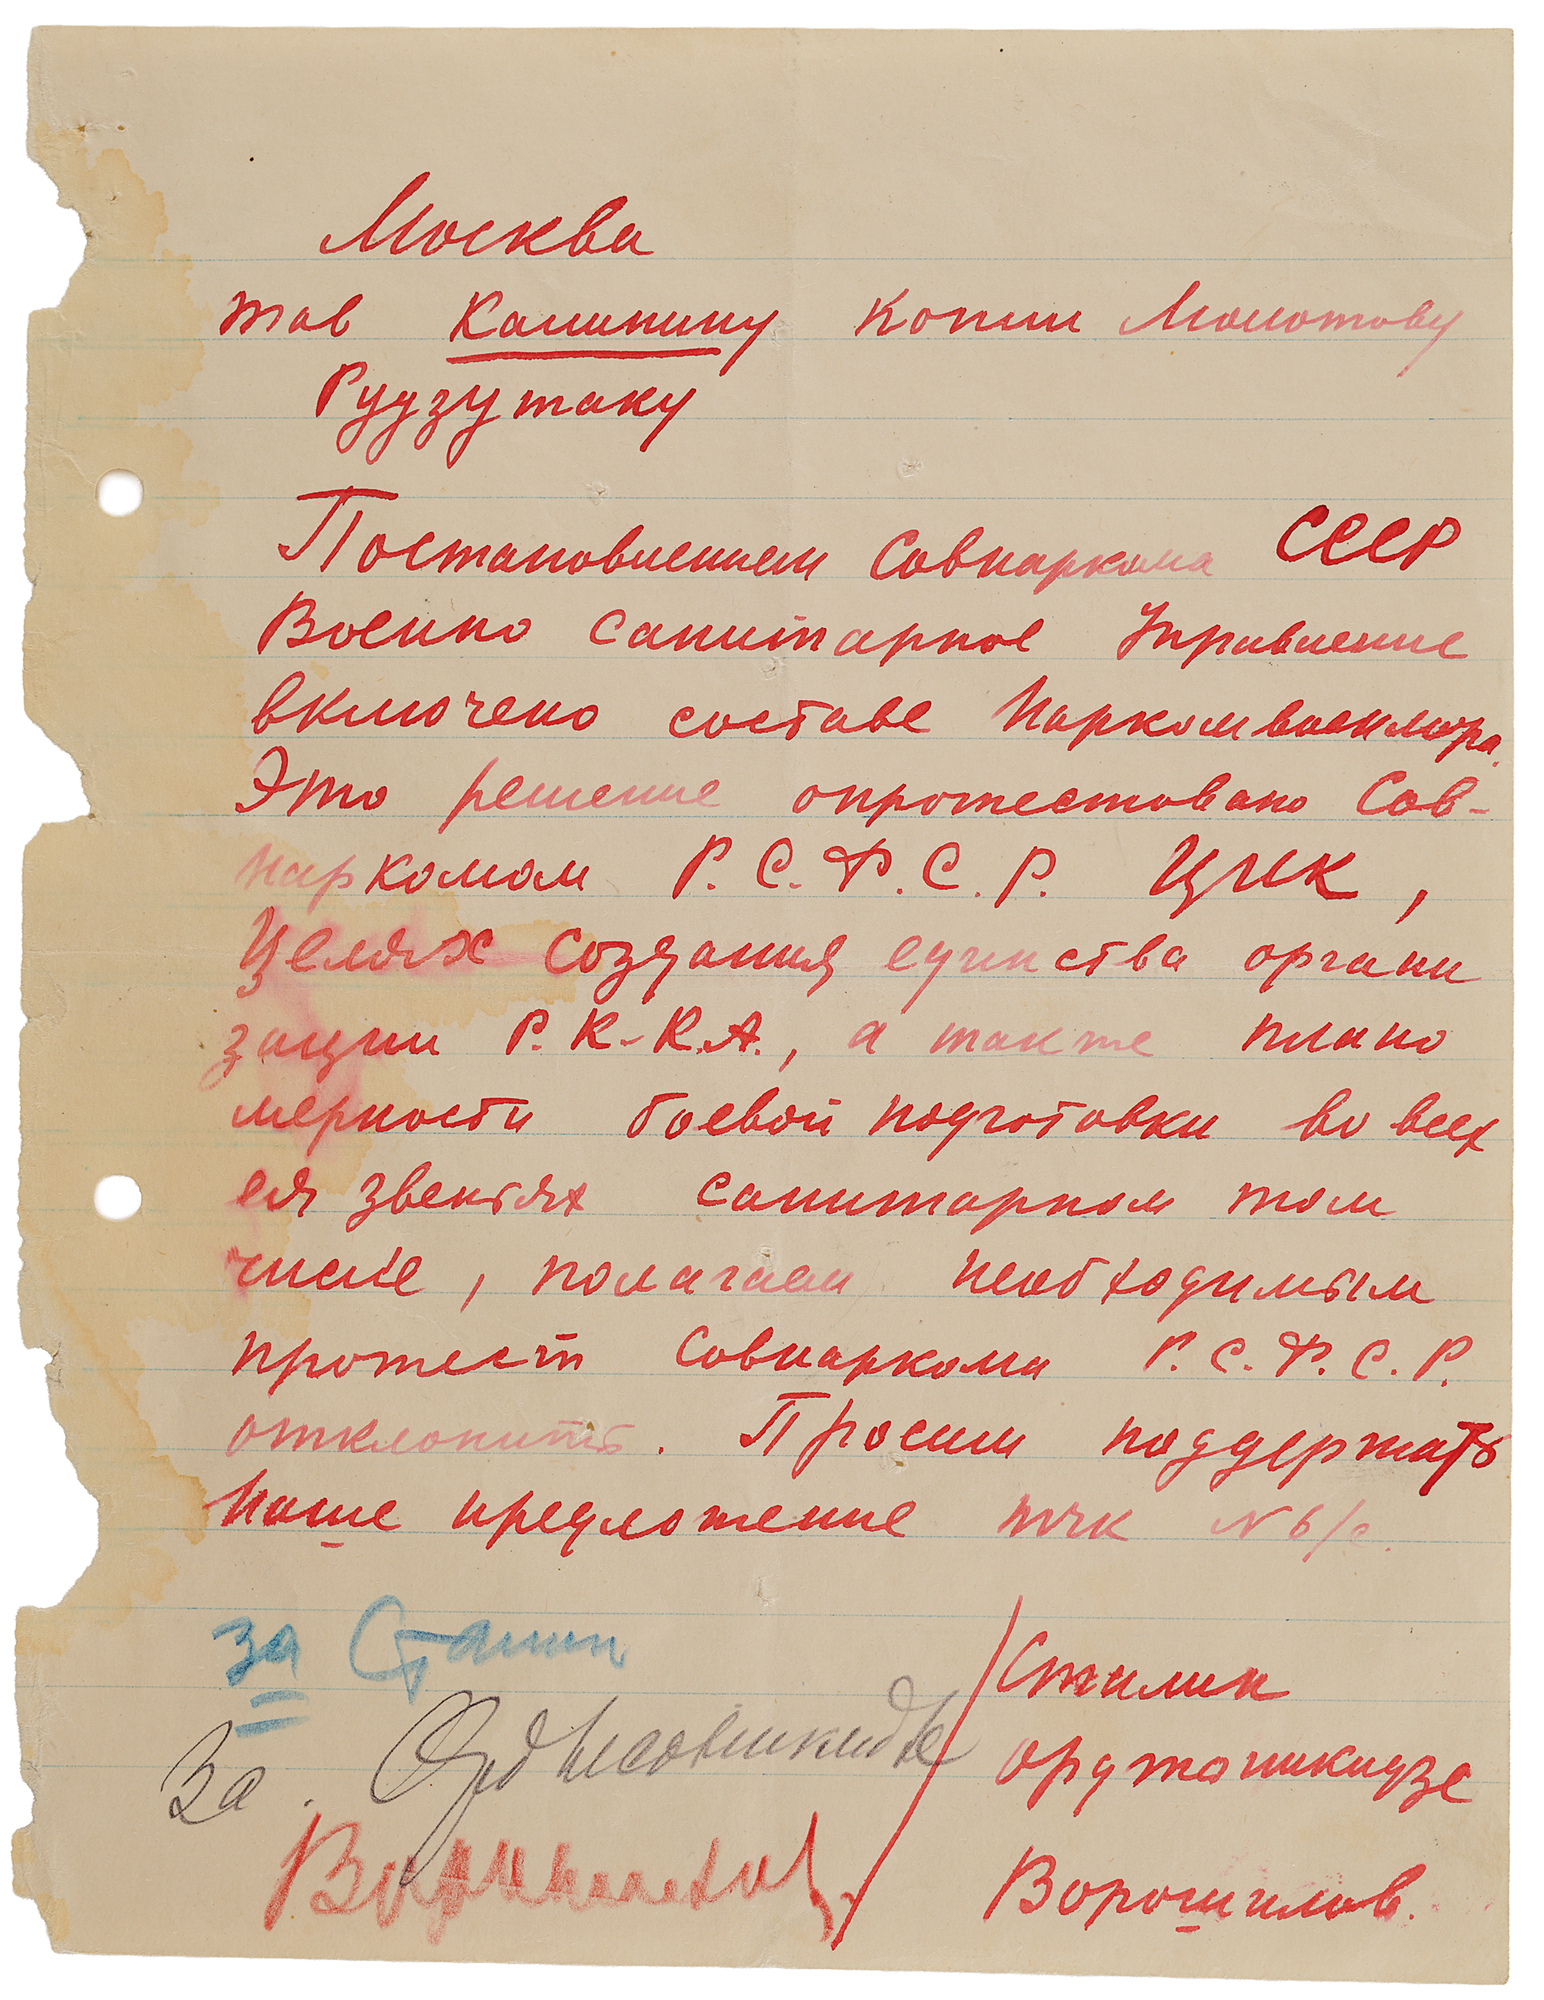 Москва
тов Калинину копии Молотову
Рудзутаку
Постановлением Совнаркома СССР
Военно Санитарное Управление
включено составе Наркомвоенмора.
Это решение опротестовано Сов-
наркомом Р.С.Ф.С.Р. ЦИК,
Целях создания единства органи
зации Р.К.-К.А., а также плано
мерности боевой подготовки во всех
ея звеньях санитарном том
числе, полагаем необходимым
протест Совнаркома Р.С.Ф.С.Р.
отклонить. Просим поддержать
наше предложение тчк N 6/с.
за Сталин
За. Орджоникидзе
Ворошилов
Сталин
Орджоникидзе
Ворошилов.